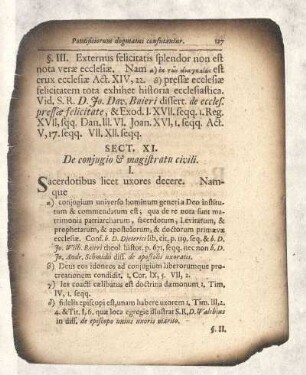 Pontificiorum dogmatus confutantur. 127
§. III. Externus felicitatis splendor non est
nota veræ ecclesiæ. Nam α) ἐκ τῶν ἀναγκαίων est
crux ecclesiæ Act. XIV, 22. β) pressæ ecclesiæ
felicitatem tota exhibet historia ecclesiastica.
Vid. S. R. D. Jo. Dav. Baieri dissert. de eccles.
pressæ felicitate, & Exod. I. XVII, seqq. 1. Reg.
XVII, sqq. Dan. III. VI, Joan. XVI, 1, seqq. Act.
V, 17. seqq. VII. XII. seqq.
SECT. XI.
De conjugio & magistratu civili.
I.
Sacerdotibus licet uxores decere. Nam-
que
α) conjugium universo hominum generi a Deo institu-
tum & commendatum est, qua de re nota sunt ma-
trimonia patriarcharum, sacerdotum, Levitarum, &
prophetarum, & apostolorum, & doctorum primævæ
ecclesiæ. Conf. b. D. Dieterici lib. cit. p. 119. seq. & b. D.
Jo. Wilh. Baieri theol. histor. p. 671, seqq. nec non b. D.
Jo. Andr. Schmidii diss. de apostolis uxoratis.
β) Deus eos idoneos ad conjugium liberorumque pro-
creationem reddidit, 1. Cor. IX, 5. VII, 2.
γ) lex coacti cælibatus est doctrina dæmonum 1. Tim.
IV, 1. seqq.
δ) fidelis episcopi est, unam habere uxorem 1. Tim. III, 2.
4. & Tit. I, 6. quæ loca egregie illustrat S. R. D. Walchius
in diss. de episcopo unius uxoris marito.
§. II.